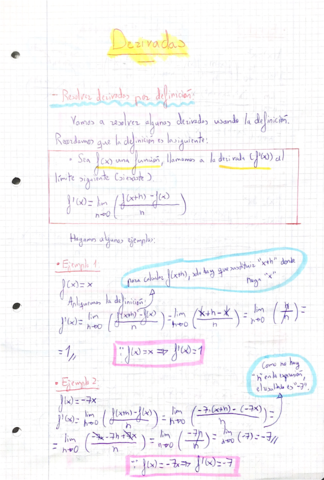 Derivadas
- Resolver derivadas por definición:
Vamos a resolver algunas derivadas usando la definición.
Recordamos que la definición es la siguiente:
• Sea f(x) una función, llamamos a la derivada (f'(x)) al
límite siguiente (si existe)
f'(x) = lim h→0 (f(x+h) - f(x) / h)
Hagamos algunos ejemplos:
• Ejemplo 1:
para calcular f(x+h), solo hay que sustituir "x+h" donde
haya "x"
f(x) = x
Apliquemos la definición:
f'(x) = lim h→0 (f(x+h) - f(x) / h) = lim h→0 (x+h-x / h) = lim h→0 (h / h) =
= 1,, ∵ f(x) = x ⟹ f'(x) = 1
• Ejemplo 2:
Como no hay
"h" en la expresión,
el resultado es "-7"
f(x) = -7x
f'(x) = lim h→0 (f(x+h) - f(x) / h) = lim h→0 (-7·(x+h) - (-7x) / h) =
= lim h→0 (-7x-7h+7x / h) = lim h→0 (-7h / h) = lim h→0 (-7) = -7,,
∵ f(x) = -7x ⟹ f'(x) = -7